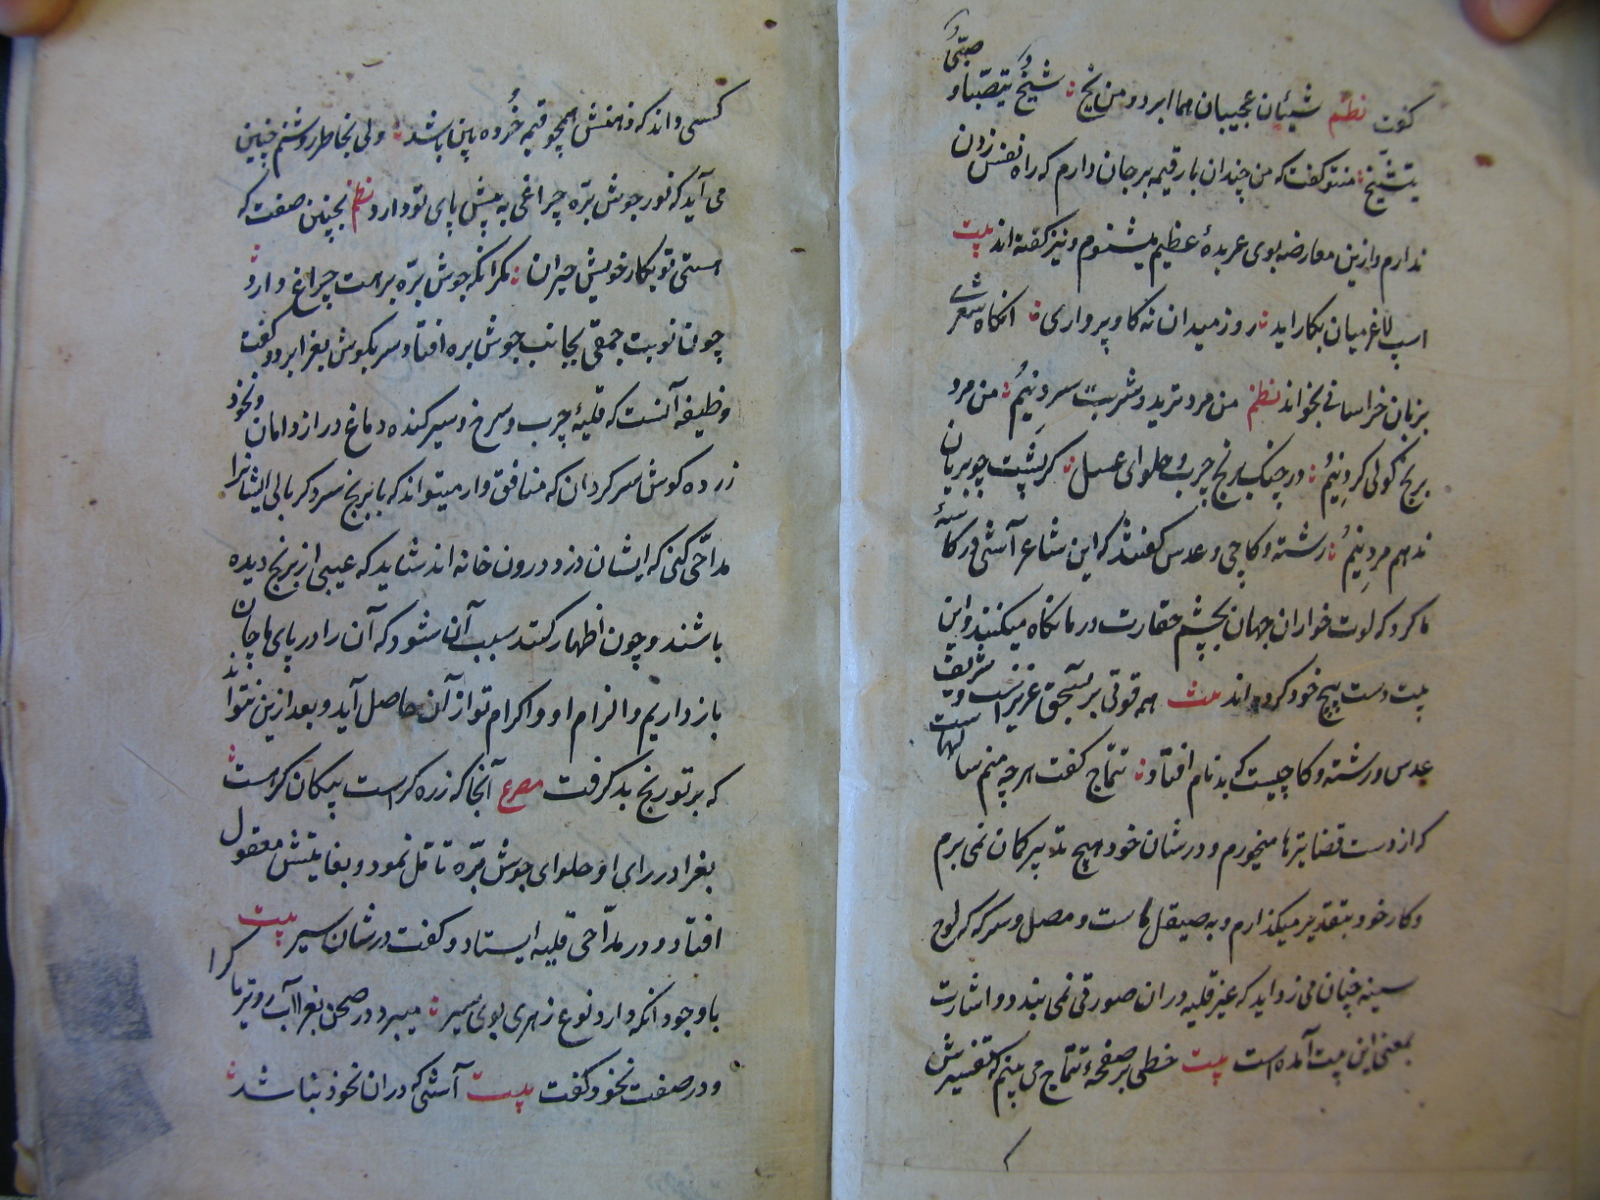 کفت نظم شیئان عجیبان هما ابرد من یخ شیخ یتصبا و صبی
یتشیخ منتو کفت که من چندان بار قیمه بر جان دارم که راه نفس زدن
ندارم و ازین معارضه بوی عربدهٔ عظیم میشنوم و نیز کفته اند بیت
اسب لاغر میان بکار اید روز میدان نه کاو پرواری انکاه شعری
بزبان خراسانی بخواند نظم من مرد ترید و شربت سرد نیم من مرد
برنج کولی کرد نیم در جنک برنج چرب و حلوای عسل کر پشت چو بریان
ندهم مرد نیم رشته و کاچی و عدس کفتند که این شاعر آشی در کاسهٔ
ما کرد که لوت خواران جهان بچشم حقارت در ما نکاه میکنند و این
بیت دست پیچ خود کرده اند بیت همه قوتی بر بسحق عزیزست و شریف
عدس و رشته و کاچیست که بدنام افتاد تتماج کفت هر چه منم سالهاست
که از دست قضا تیرها میخورم و در شان خود هیچ تدبیر کمان نمی برم
و کار خود بتقدیر میکذارم و به صیقل ماست و مصل و سرکه که لوح
سینه چنان می زداید که غیر قلیه در ان صورتی نمی بیند و اشارت
بمعنی این بیت آمده است بیت خطی بر صفحهٔ تتماج می بینم که تفسیرش
کسی داند که ذهنش همچو قیمه خُرده بین باشد ولی بخاطر روشنم چنین
می آید که نور جوش بره چراغی به پیش پای تو دارد نظم بچنین صفت که
هستی تو بکار خویش حیران مکر انکه جوش بره برهت چراغ دارد
چون نوبت چمقی بجانب جوش بره افتاد سر بکوش بغرا برد و کفت
وظیفه آنست که قلیهٔ چرب و سرخ و سیر کنده دماغ دراز دامان و نخود
زرده کوش سر کردان که منافق وار میتواند که با برنج سر و کر بالی ایشانرا
مداحی کنی که ایشان دزد درون خانه اند شاید که عیبی از برنج دیده
باشند و چون اظهار کنند سبب آن شود که آن را در پای ماچان
باز داریم و الزام او و اکرام تو از آن حاصل آید و بعد ازین نتواند
که بر تو رنج بد کرفت مصرع آنجا که زره کرست پیکان کرست
بغرا در رای او حلوای جوش بره تامل نمود و بغایتش معقول
افتاد و در مداحی قلیه ایستاد و کفت در شان سیر بیت
با وجود انکه دارد نوع زهری بوی سیر میبرد در صحن بغرا آب روی تیر ما کرا
و در صفت نخود کفت بیت آشی که در ان نخود نباشد